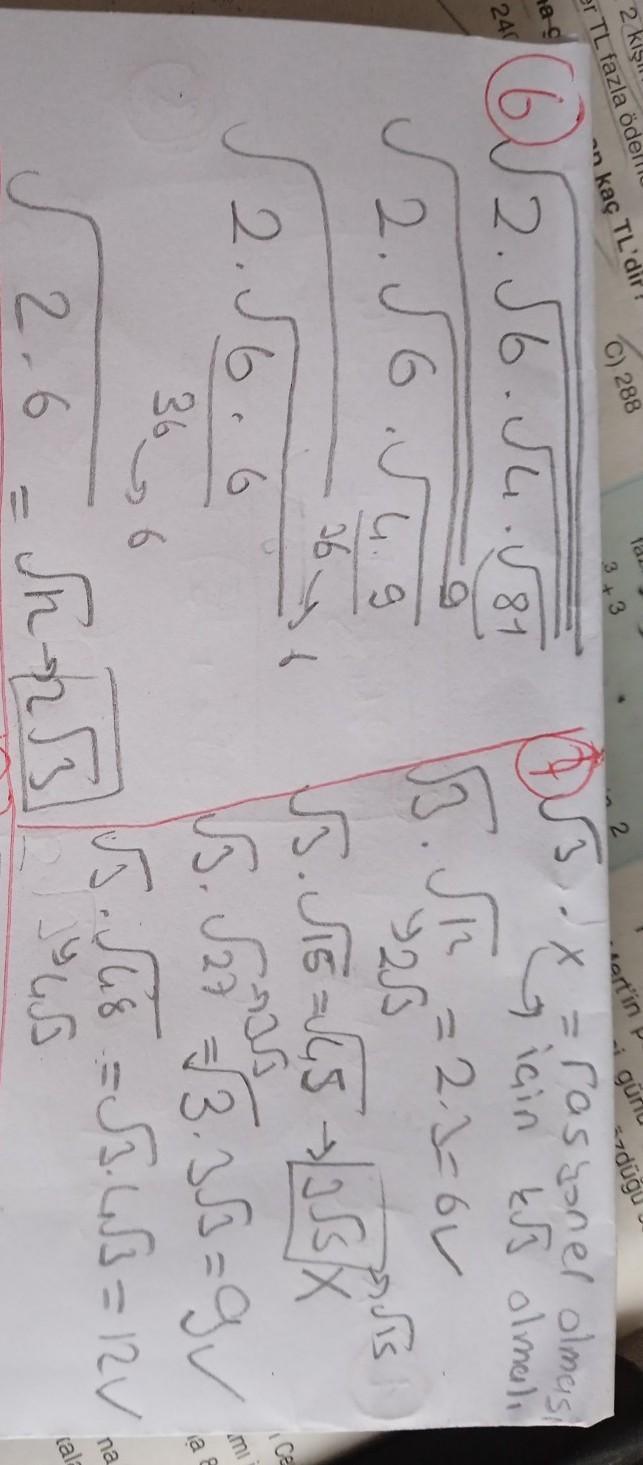 6 √2.√6.√4.√81
√2.√6.√4.9 9
√2.√6.6 36 → 6
√2.6 = √12 → 2√3 36 → 6
7 √3 . x = rasyonel olması
için k√3 olmalı
√3.√12 = 2.3 = 6 ✓
→ 2√3
√3.√15 = √45 → 3√5 X → √15
√3.√27 = √3.3√3 = 9 ✓
→ 3√3
√3.√48 = √3.4√3 = 12 ✓
→ 4√3
2 kişi
er TL fazla ödem
en kaç TL'dir?
C) 288
240
3 + 3
2
Mert'in
günü
özdüğü
na